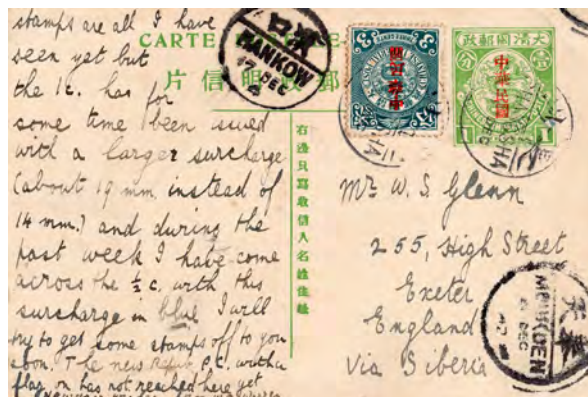 stamps are all I have
seen yet but
the 1c. has for
some time been issued
with a larger surcharge
(about 19 mm. instead of
14 mm.) and during the
past week I have come
across the ½ c. with this
surcharge in blue I will
try to get some stamps off to you
soon. The new Repub P.C. with a
flag on has not reached here yet
CARTE
HANKOW
DEC
片信明郵
政郵國清大
中華民國
中華民國
1
3
3
右邊只寫收信人名姓住址
Mr W. S. Glenn
255, High Street
Exeter
England
Via Siberia
MOUKDEN
DEC
奉天